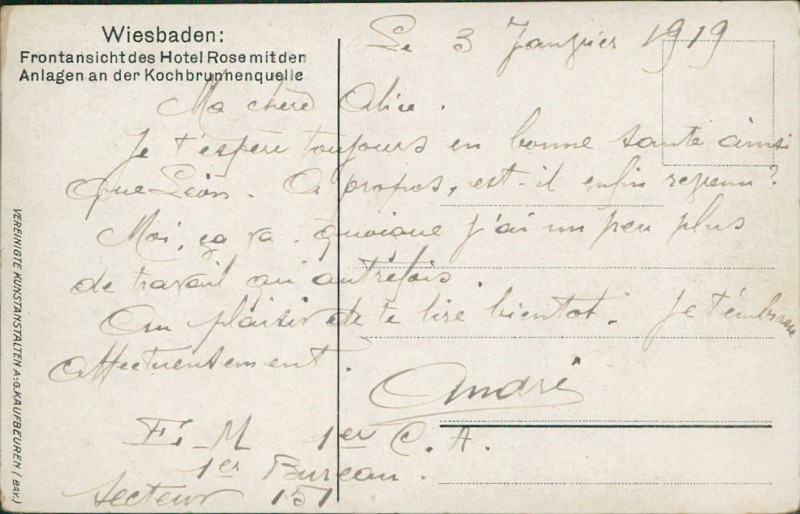 Wiesbaden:
Frontansicht des Hotel Rose mit den
Anlagen an der Kochbrunnenquelle
Le 3 Janvier 1919
Ma chère Alice.
Je t'espère toujours en bonne santé ainsi
que Léon. A propos, est-il enfin revenu?
Moi, ça va. quoique j'ai un peu plus
de travail qu'autrefois.
Au plaisir de te lire bientot. Je t'embrasse
affectueusement.
André
E.-M 1er C. A.
1er Bureau.
Secteur 151
VEREINIGTE KUNSTANSTALTEN A:G. KAUFBEUREN (BAY.)